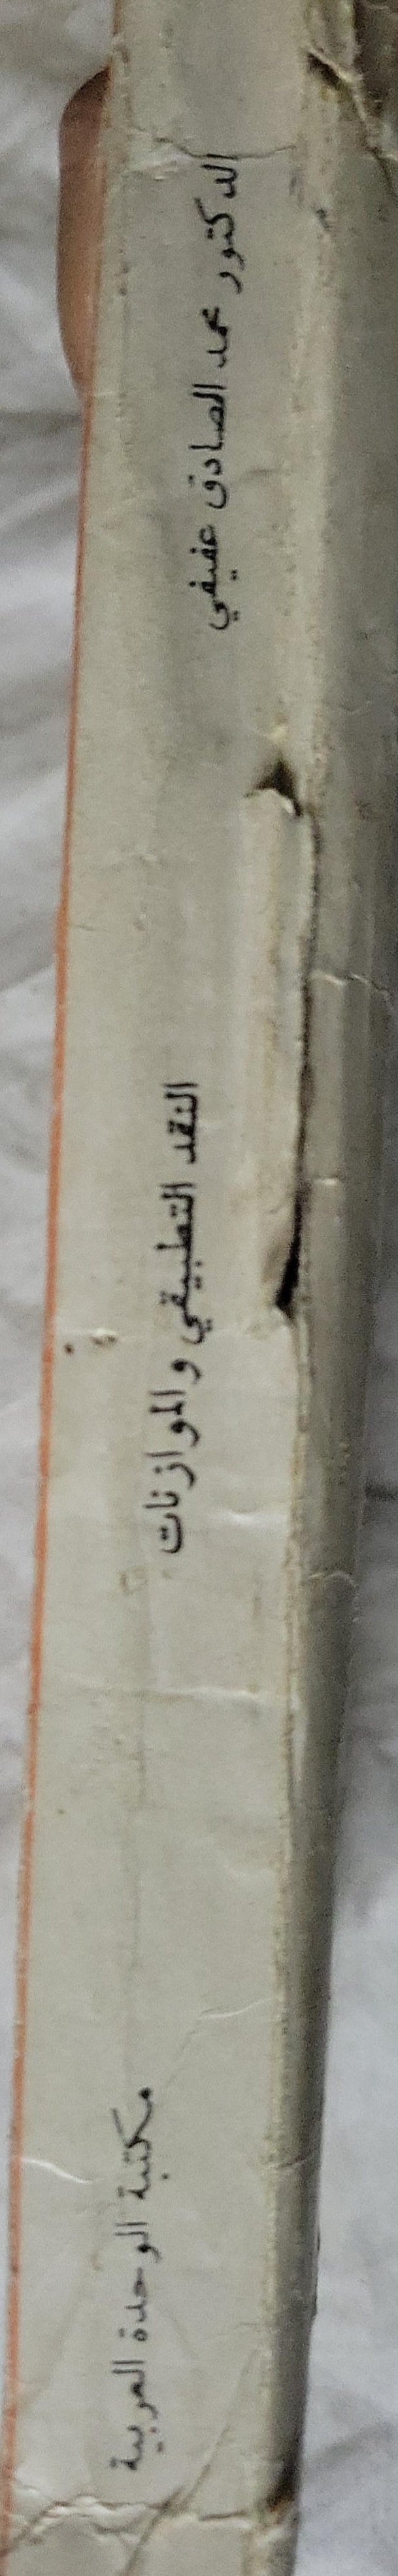 الدكتور محمد الصادق عفيفي
النقد التطبيقي والموازنات
مكتبة الوحدة العربية